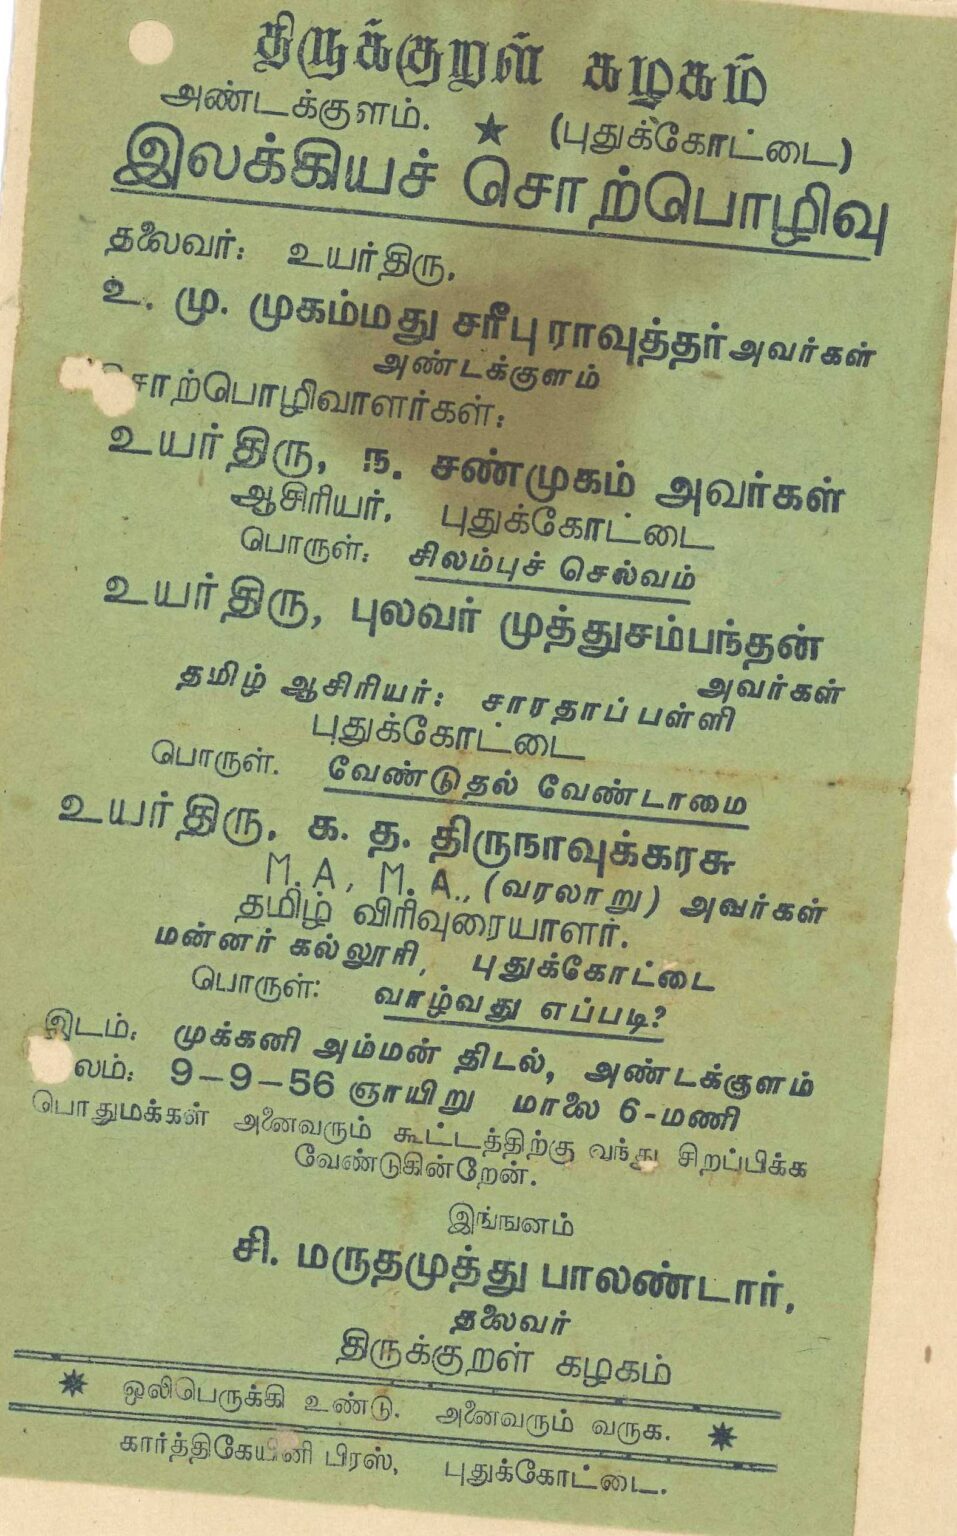 திருக்குறள் கழகம்
அண்டக்குளம். ★ (புதுக்கோட்டை)
இலக்கியச் சொற்பொழிவு
தலைவர்: உயர்திரு.
உ. மு. முகம்மது சரீபு ராவுத்தர் அவர்கள்
அண்டக்குளம்
சொற்பொழிவாளர்கள்:
உயர்திரு, ந. சண்முகம் அவர்கள்
ஆசிரியர், புதுக்கோட்டை
பொருள்: சிலம்புச் செல்வம்
உயர்திரு, புலவர் முத்துசம்பந்தன்
அவர்கள்
தமிழ் ஆசிரியர்: சாரதாப்பள்ளி
புதுக்கோட்டை
பொருள். வேண்டுதல் வேண்டாமை
உயர்திரு, க. த. திருநாவுக்கரசு
M.A, M.A., (வரலாறு) அவர்கள்
தமிழ் விரிவுரையாளர்.
மன்னர் கல்லூரி, புதுக்கோட்டை
பொருள்: வாழ்வது எப்படி?
இடம்: முக்கனி அம்மன் திடல், அண்டக்குளம்
லம்: 9-9-56 ஞாயிறு மாலை 6-மணி
பொதுமக்கள் அனைவரும் கூட்டத்திற்கு வந்து சிறப்பிக்க
வேண்டுகின்றேன்.
இங்ஙனம்
சி. மருதமுத்து பாலண்டார்,
தலைவர்
திருக்குறள் கழகம்
ஒலிபெருக்கி உண்டு. அனைவரும் வருக.
கார்த்திகேயினி பிரஸ், புதுக்கோட்டை.